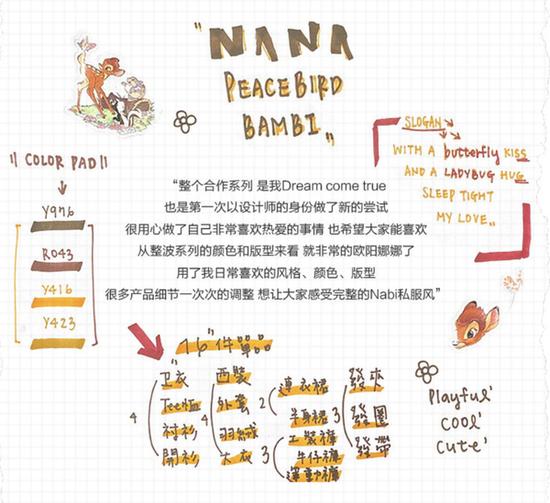 "NANA
PEACEBIRD
BAMBI"
"COLOR PAD"
Y976
R043
Y416
Y423
SLOGAN
WITH A butterfly KISS
AND A LADYBUG HUG
SLEEP TIGHT
MY LOVE
“整个合作系列 是我Dream come true
也是第一次以设计师的身份做了新的尝试
很用心做了自己非常喜欢热爱的事情 也希望大家能喜欢
从整波系列的颜色和版型来看 就非常的欧阳娜娜了
用了我日常喜欢的风格、颜色、版型
很多产品细节一次次的调整 想让大家感受完整的Nabi私服风”
16"件單品
4
卫衣
Tee恤
衬衫
開衫
4
西裝
外套
羽絨
大衣
2
連衣裙
半身裙
3
工裝褲
牛仔褲
運動褲
3
發夾
發圈
發帶
Playful'
Cool'
Cute'